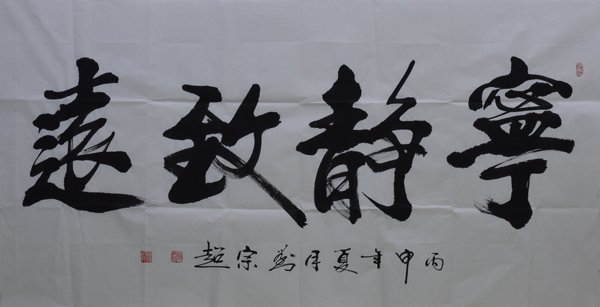 寧靜致遠
丙申年夏月劉宗超